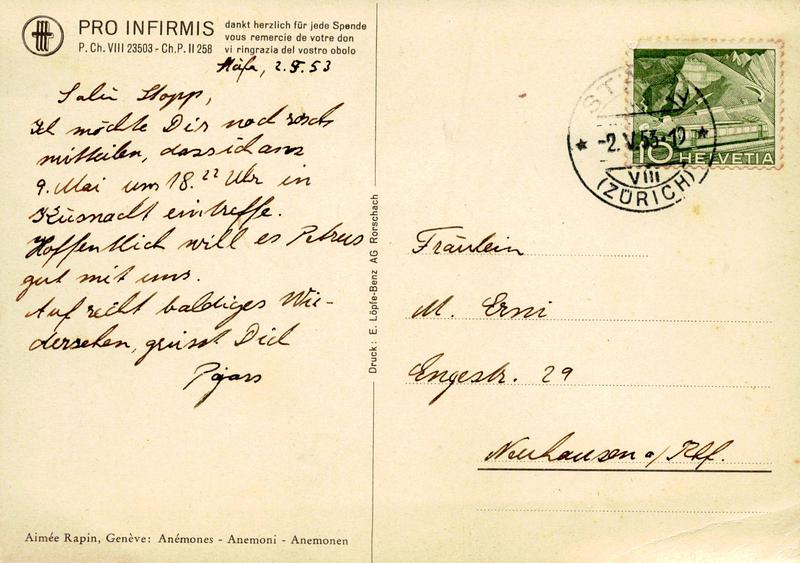 PRO INFIRMIS
P. Ch. VIII 23503 - Ch. P. II 258
dankt herzlich für jede Spende
vous remercie de votre don
vi ringrazia del vostro obolo
Stäfa, 2.5.53
Salü Stopp,
Ich möchte Dir noch rasch
mitteilen, dass ich am
9. Mai um 18.22 Uhr in
Küsnacht eintreffe.
Hoffentlich will es Petrus
gut mit uns.
Auf recht baldiges Wie-
dersehen, grüsst Dich
Druck: E. Löpfe-Benz AG Rorschach
Aimée Rapin, Genève: Anémones - Anemoni - Anemonen
-2.V.53-
VIII
(ZÜRICH)
10 HELVETIA
Fräulein
M. Erni
Engestr. 29
Neuhausen a/Rhf.